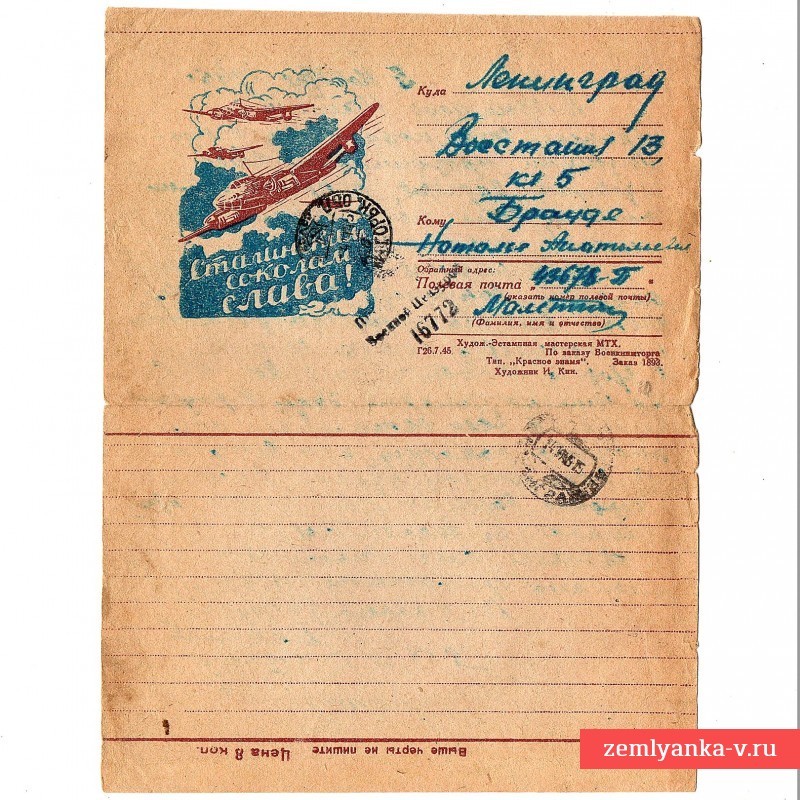 Сталинским
соколам
слава!
Куда Ленинград
Восстания 13,
кв 5
Кому Брауде
Наталье Анатольевне
Обратный адрес:
Полевая почта "
(указать номер полевой почты)
(Фамилия, имя и отчество)
Худож.-Эстампная мастерская МТХ.
Г26.7.45. По заказу Военкниготорга
Тип. „Красное знамя". Заказ 1893.
Художник И. Кин.
ГОРЬК. ОБЛ.
Военной Цензурой
16772
Выше черты не пишите Цена 8 коп.
zemlyanka-v.ru